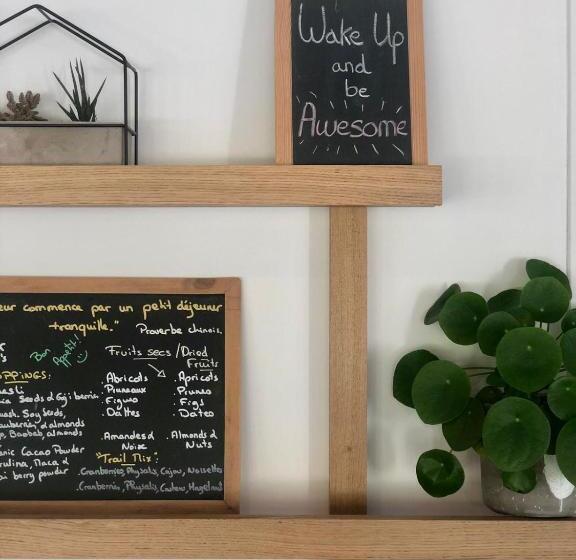 Wake Up
and
be
Awesome
eur commence par un petit déjeuner
tranquille." Proverbe chinois.
Bon
Appétit!
Fruits secs / Dried
Fruits
OPPINGS:
. Abricots . Apricots
. Pruneaux . Prunes
. Figues . Figs
. Dattes . Dates
Seeds & Goji berries
uash, Soy Seeds,
auberries & almonds
, Baobab, almonds
. Amandes & . Almonds &
Noix Nuts
enic Cacao Powder
rulina, Maca &
ai berry powder
"Trail Mix":
. Cranberries, Physalis, Cajou, Noisettes
. Cranberries, Physalis, Cashew, Hazelnut